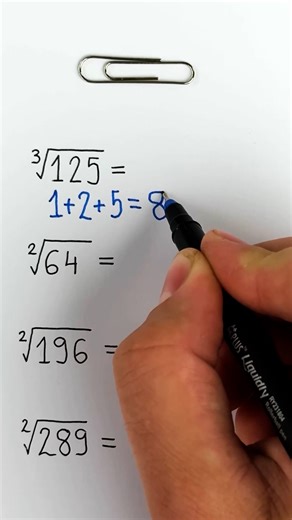 ³√125 =
1+2+5=8
²√64 =
²√196 =
²√289 =
Liquidty